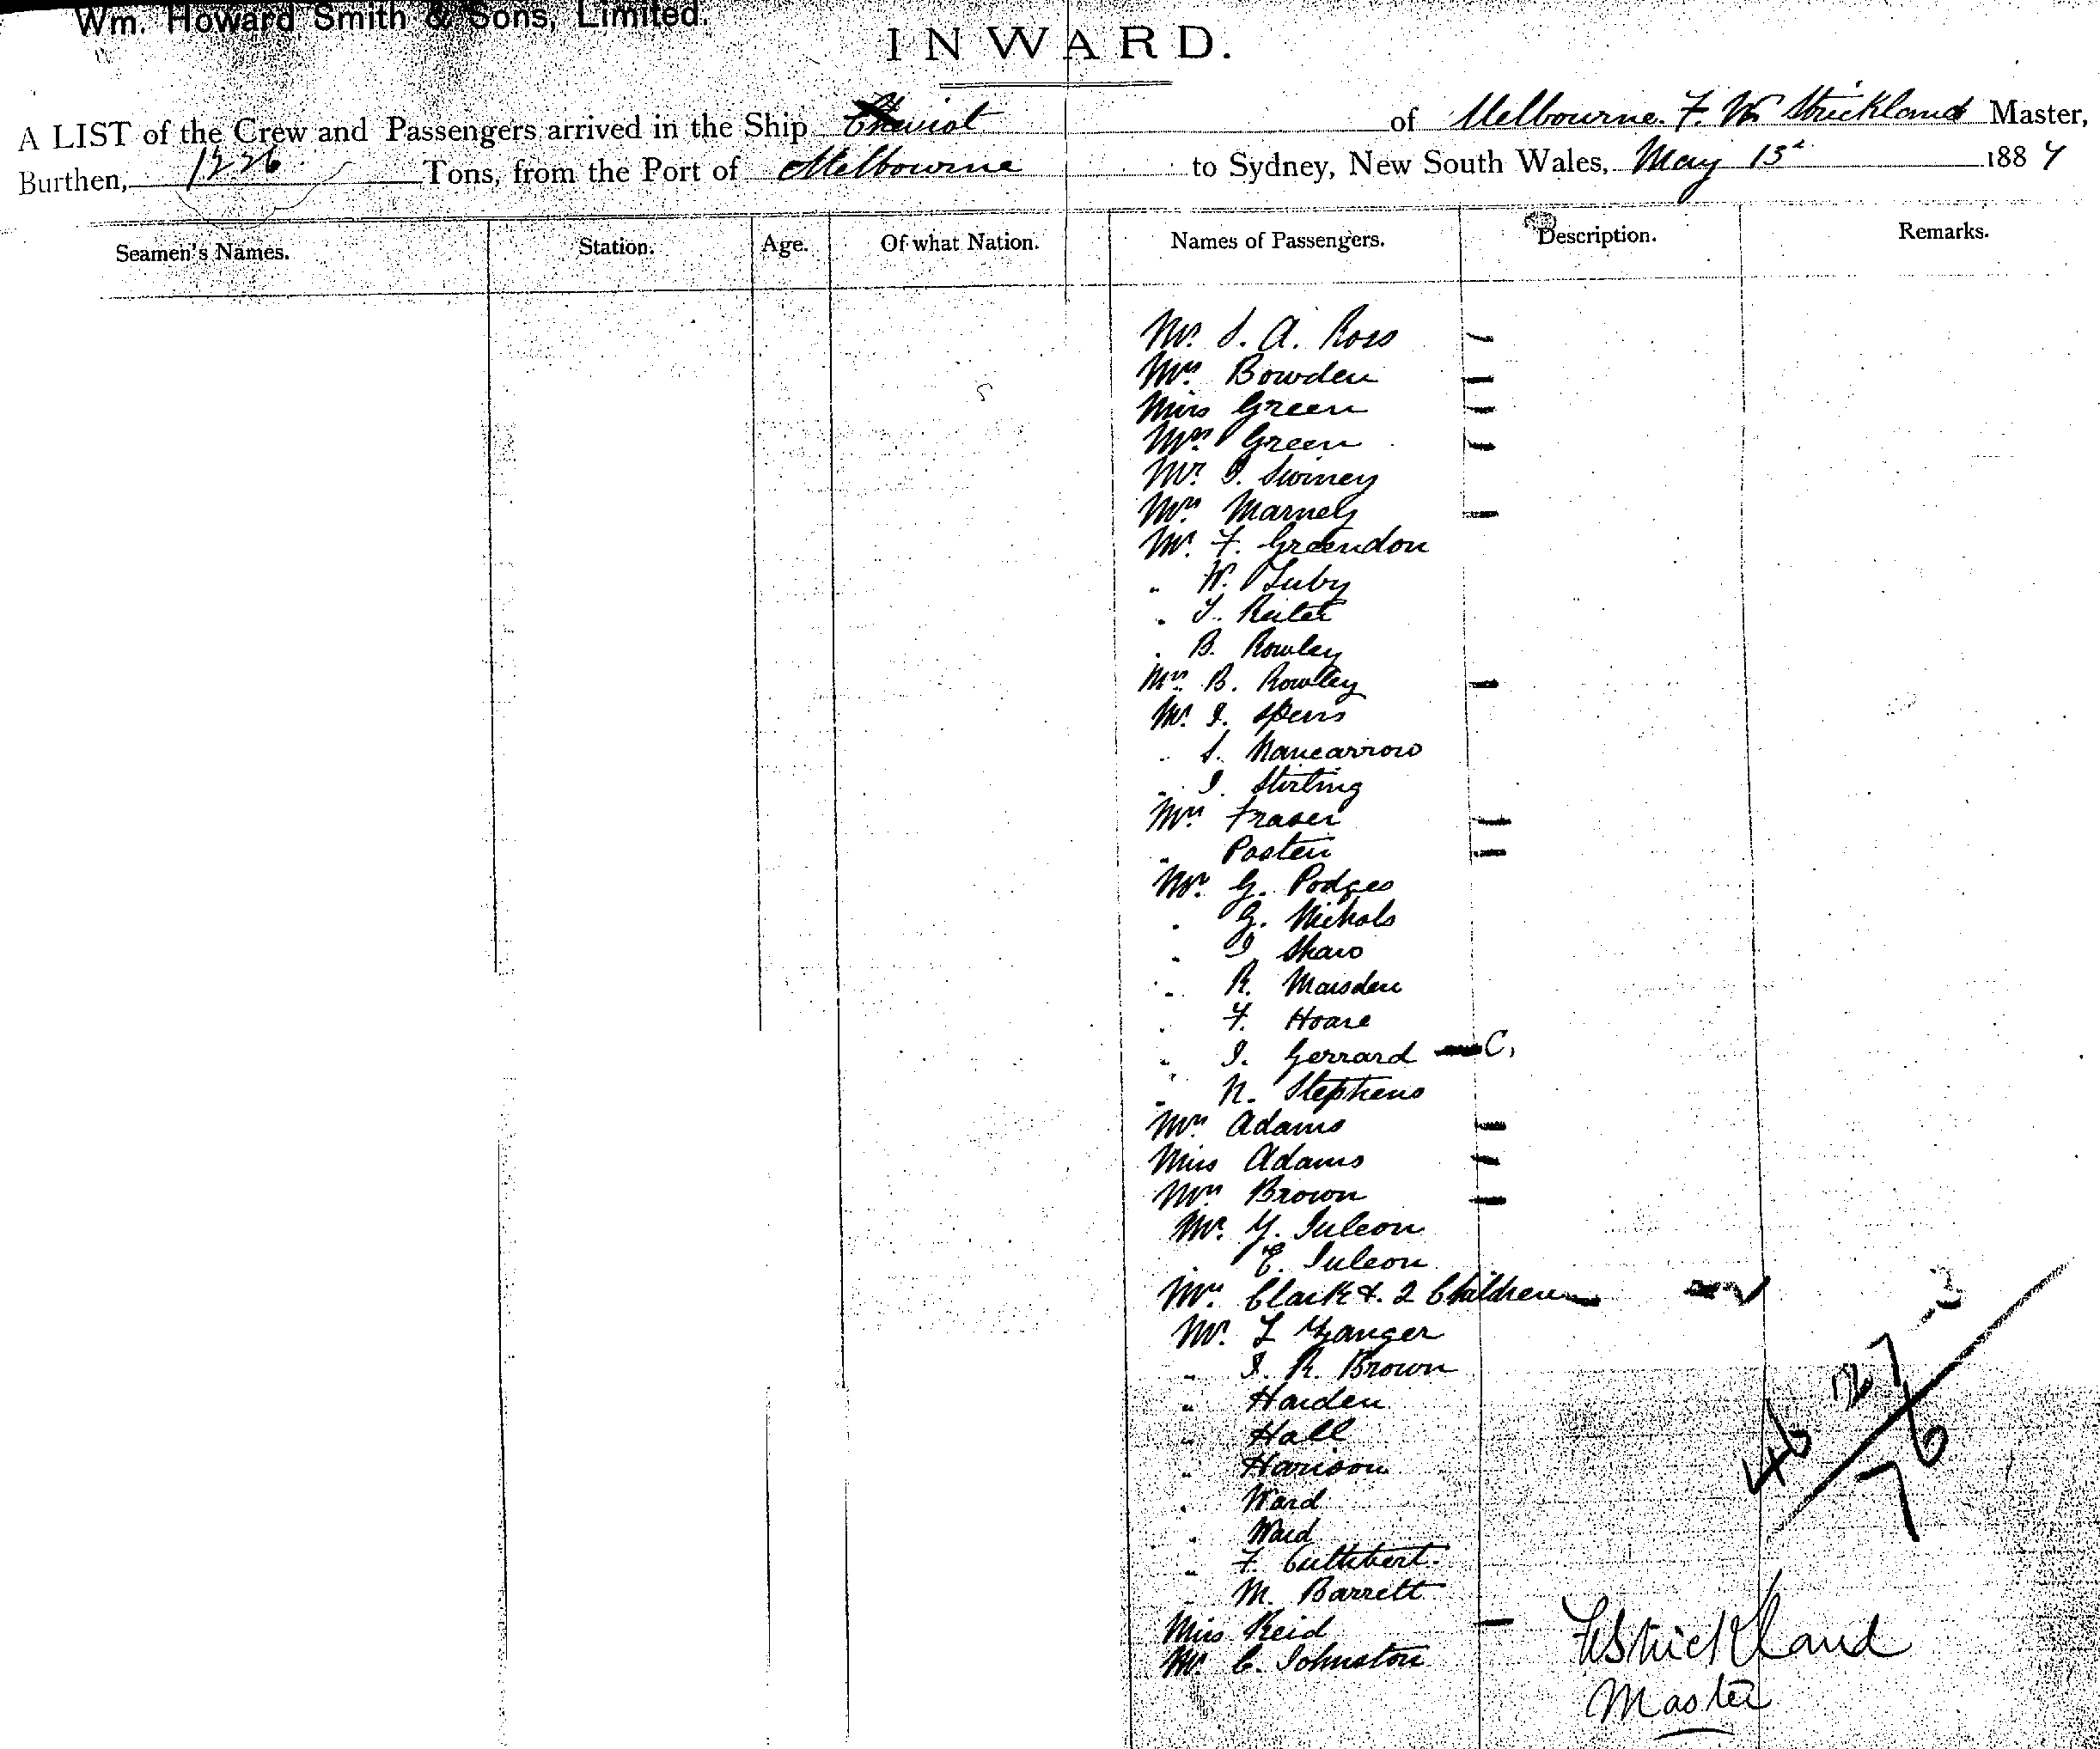 Wm. Howard Smith & Sons, Limited.
INWARD.
A LIST of the Crew and Passengers arrived in the Ship Cheviot of Melbourne. F. W Strickland Master,
Burthen, 1226 Tons, from the Port of Melbourne to Sydney, New South Wales, May 15th 1887
Seamen's Names. Station. Age. Of what Nation. Names of Passengers. Description. Remarks.
Mr. S. A. Ross
Mrs. Bowden
Miss Green
Mrs Green
Mr. J. Swiney
Mrs Marnely
Mr. F. Greendon
" W. Luby
" B. Rowley
Mrs. B. Rowley
Mr. J. Speirs
" S. Nancarrow
" J. Stirling
Mrs Fraser
" Posten
Mr. G. Podges
" G. Nichols
" J. Shaw
" R. Marsden
" F. Hoare
" J. Gerrard C,
" N. Stephens
Mrs Adams
Miss Adams
Mrs Brown
Mr. Y. Juleon
E. Juleon
Mrs. Clark & 2 Children
Mr. L Zanger
" J. R. Brown
" Harden
" Hall
" Harison
" Ward
" Ward
" F. Cuthbert.
" M. Barrett
Miss Reid
Mr. C. Johnston
46 27 3
76
F W Strickland
Master